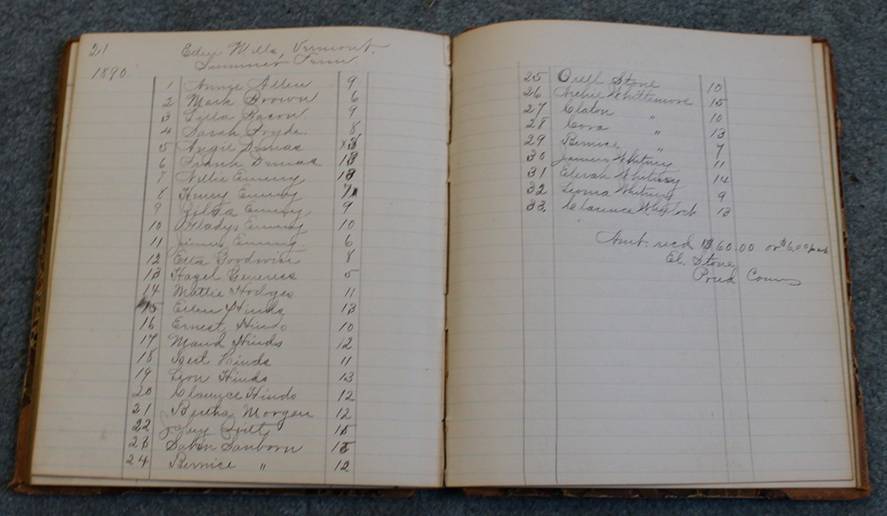 21 Eden Mills, Vermont.
Summer Term
1890
1 Annie Allen 9
2 Mark Brown 6
3 Lylla Bacon 9
4 Sarah 8
5 Angie Dumas
6 Frank Dumas 13
7 Nellie Emery 13
8 Henry Emery 7
9 Emery 9
10 Gladys Emery 10
11 Jimmy Emery 6
12 Etta Goodwin 8
13 Hazel 5
14 Mattie Hodges 11
15 Ellen Hinds 13
16 Ernest Hinds 10
17 Maud Hinds 12
18 Bert Hinds 11
19 Leon Hinds 13
20 Clarence Hinds 12
21 Bertha Morgan 12
22 15
23 Sabin Sanborn
24 Bernice " 12
25 Orell Stone 10
26 Archie Whittemore 15
27 Claton " 10
28 Cora " 13
29 Bernice " 7
30 James Whitney 11
31 Whitney 14
32 Leona Whitney 9
33. Clarence 13
Amt. recd $60.00 or $6.00 per wk
El. Stone
Prud Com